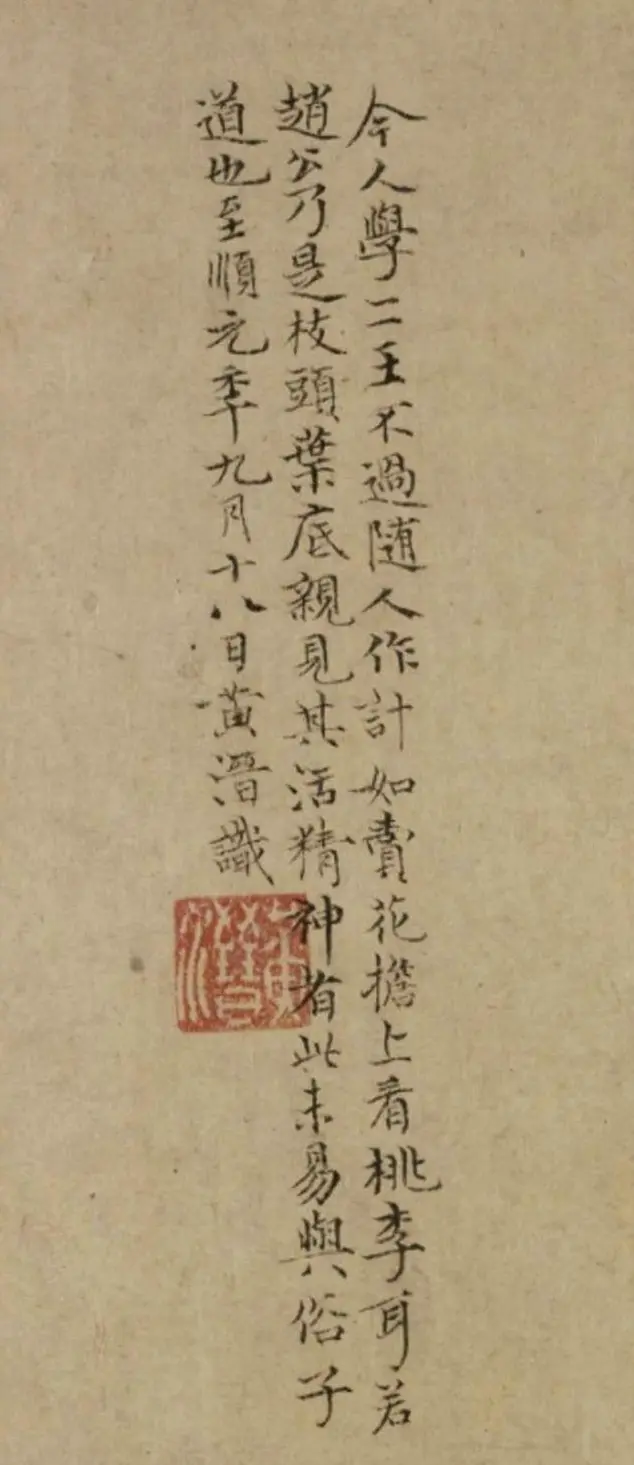 今人學二王不過隨人作計如賣花擔上看桃李耳若
趙公乃是枝頭葉底親見其活精神者此未易與俗子
道也至順元季九月十八日黃溍識